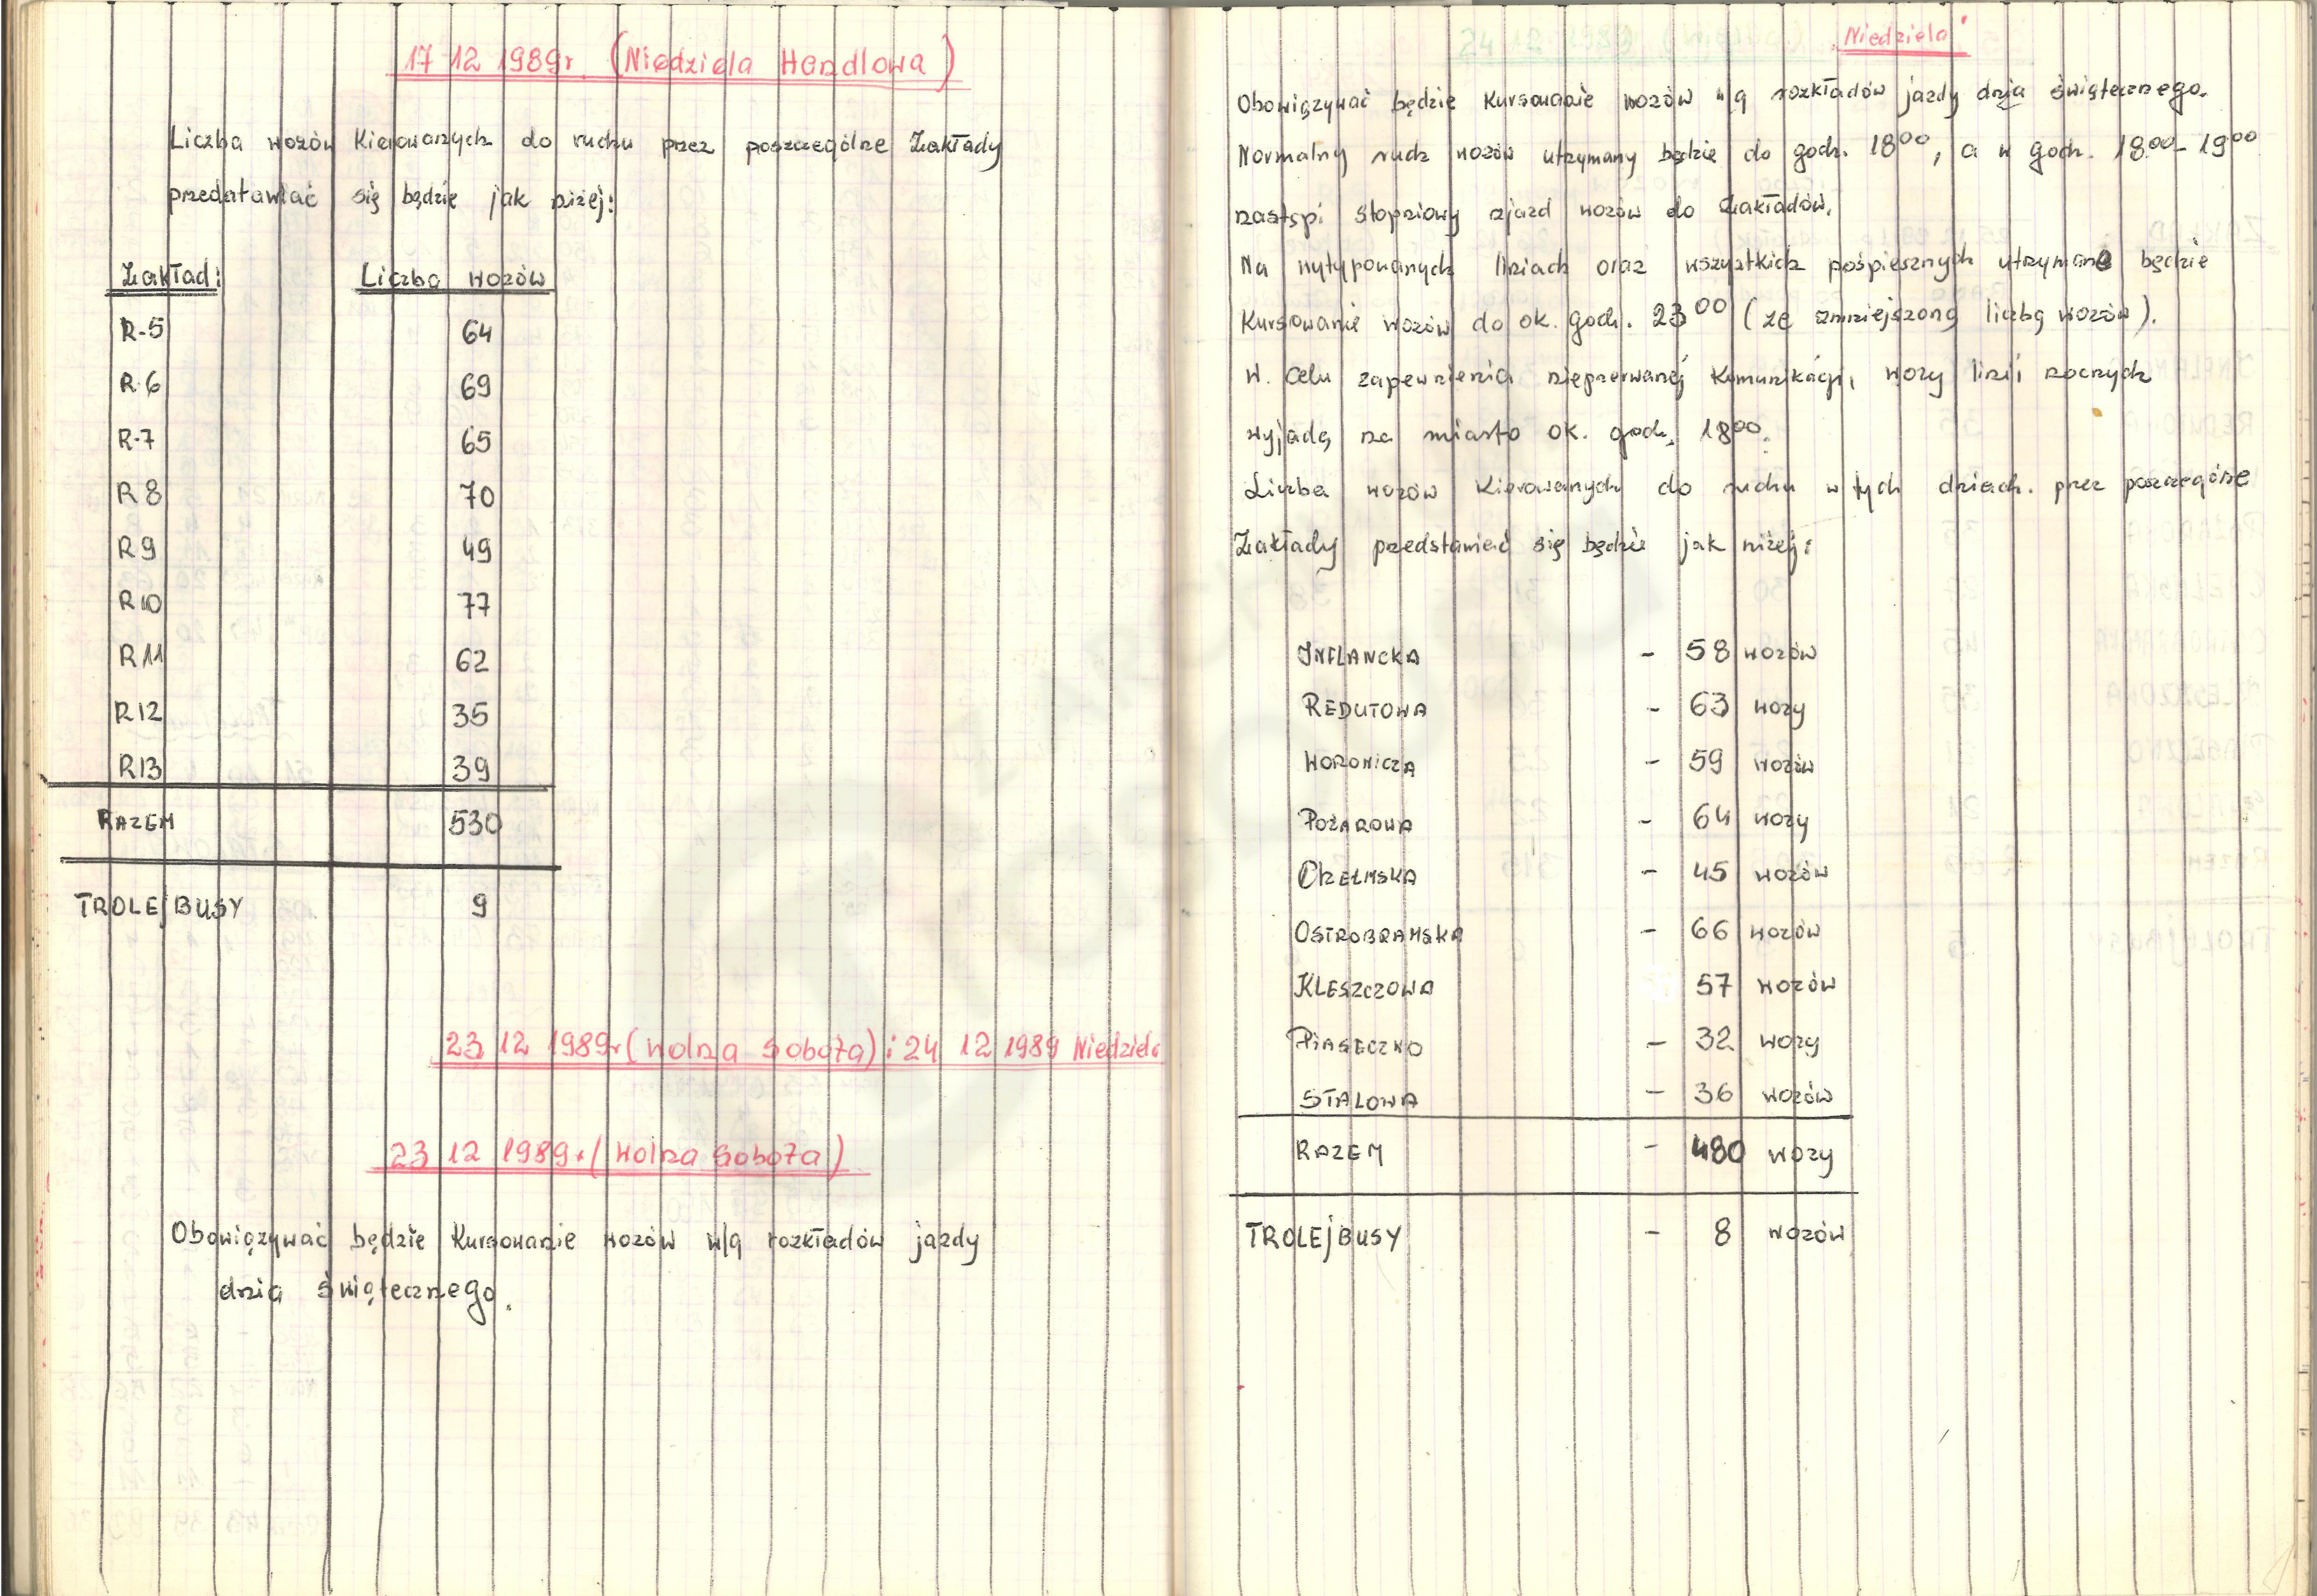 17 12 1989r. (Niedziela Handlowa)
Liczba wozów kierowanych do ruchu przez poszczególne Zakłady
przedstawiać się będzie jak niżej:
Zakład: Liczba wozów
R-5 64
R-6 69
R-7 65
R 8 70
R 9 49
R 10 77
R 11 62
R 12 35
R 13 39
RAZEM 530
TROLEJBUSY 9
23 12 1989r (Wolna Sobota) i 24 12 1989 Niedziela
23 12 1989r (Wolna Sobota)
Obowiązywać będzie kursowanie wozów w/g rozkładów jazdy
dnia świątecznego.
24 12 1989 (Niedziela) "Niedziela"
Obowiązywać będzie kursowanie wozów w/g rozkładów jazdy dnia świątecznego.
Normalny ruch wozów utrzymany będzie do godz. 18⁰⁰, a w godz. 18⁰⁰-19⁰⁰
nastąpi stopniowy zjazd wozów do Zakładów.
Na wytypowanych liniach oraz wszystkich pośpiesznych utrzymane będzie
kursowanie wozów do ok. godz. 23⁰⁰ (ze zmniejszoną liczbą wozów).
W. celu zapewnienia nieprzerwanej komunikacji, wozy linii nocnych
wyjadą na miasto ok. godz. 18⁰⁰.
Liczba wozów kierowanych do ruchu w tych dniach. przez poszczególne
Zakłady przedstawiać się będzie jak niżej:
INFLANCKA - 58 wozów
REDUTOWA - 63 wozy
WORONICZA - 59 wozów
POŻAROWA - 64 wozy
CHEŁMSKA - 45 wozów
OSTROBRAMSKA - 66 wozów
KLESZCZOWA 57 wozów
PIASECZNO - 32 wozy
STALOWA - 36 wozów
RAZEM - 480 wozy
TROLEJBUSY - 8 wozów